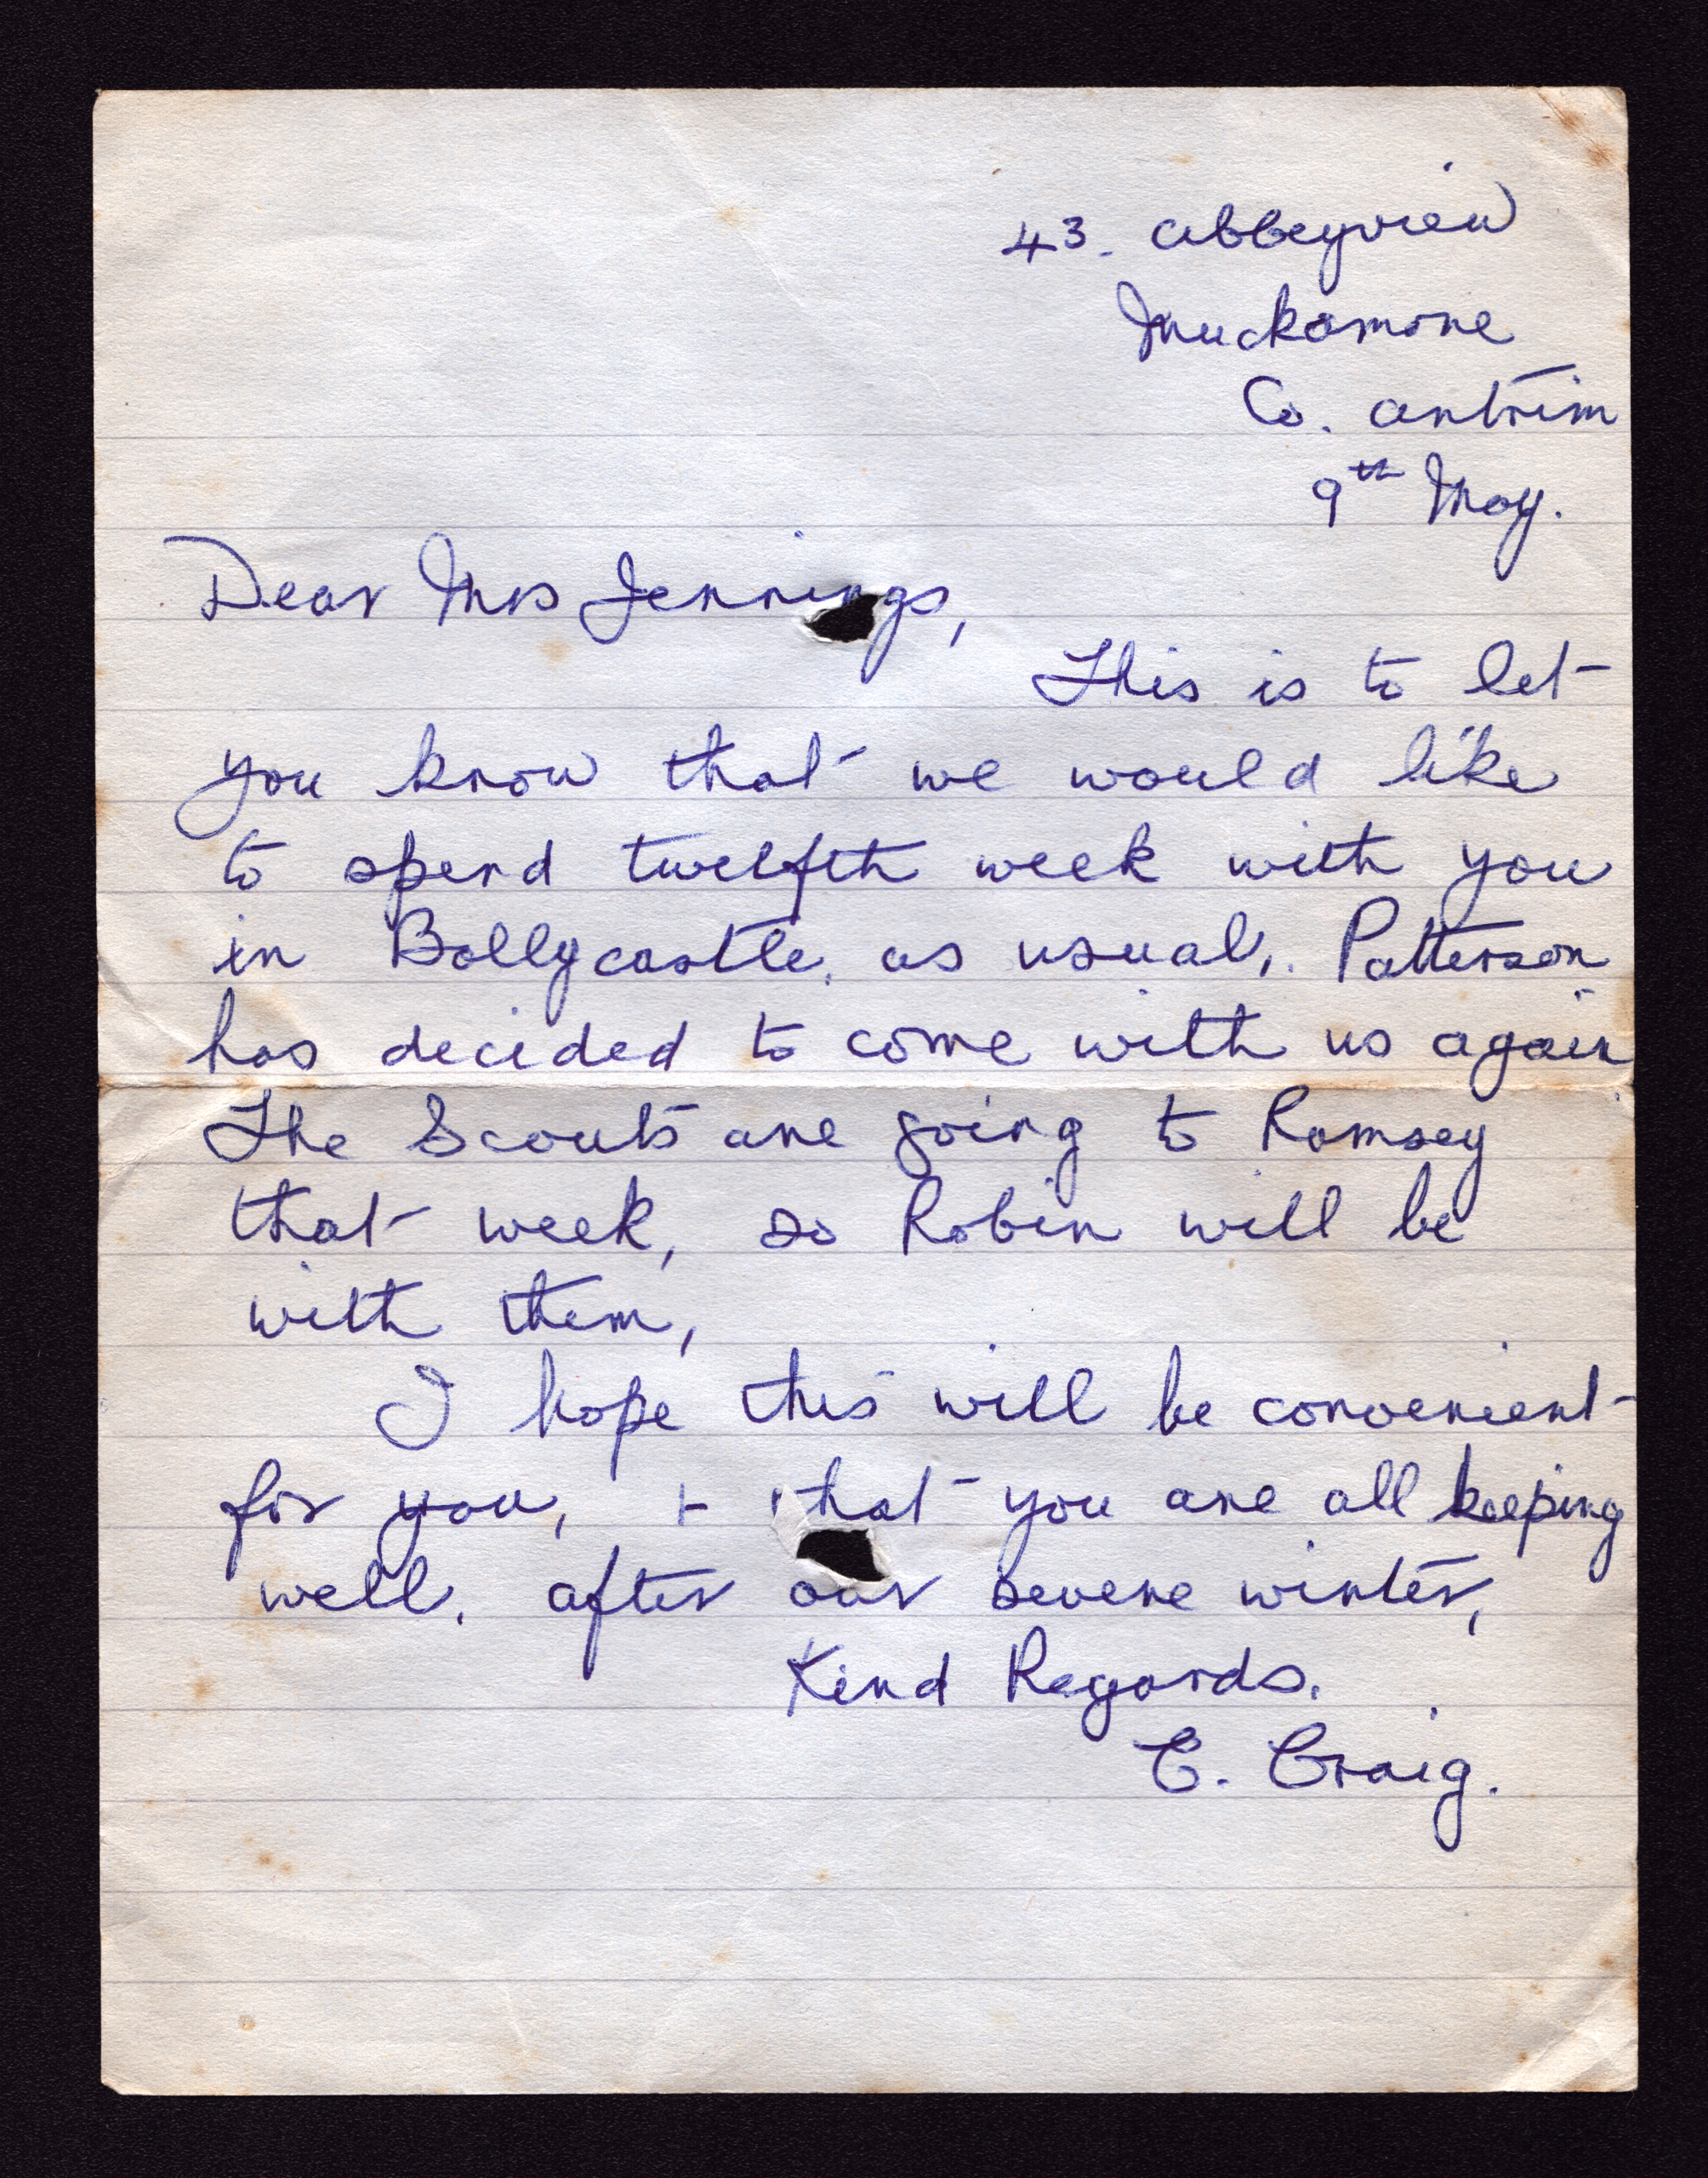 43. Abbeyview
Muckamore
Co. Antrim
9th May.
Dear Mrs Jennings,
This is to let
you know that we would like
to spend twelfth week with you
in Ballycastle, as usual,. Patterson
has decided to come with us again
The Scouts are going to Ramsey
that week, so Robin will be
with them,
I hope this will be convenient
for you, + that you are all keeping
well, after our severe winter,
Kind Regards,
C. Craig.